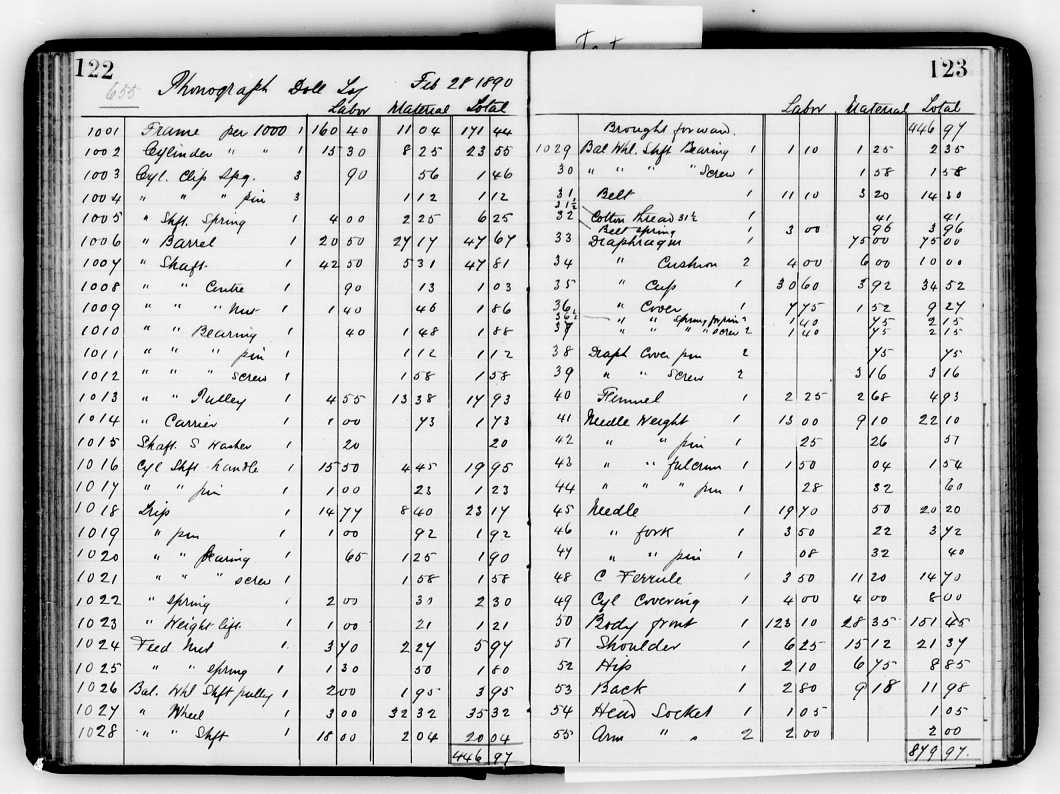 122
655 Phonograph Doll Feb 28 1890
Labor Material Total
1001 Frame per 1000 1 160 40 11 04 171 44
1002 Cylinder " " 1 15 30 8 25 23 55
1003 Cyl. Clip Spg. 3 90 56 1 46
1004 " " " pin 3 1 12 1 12
1005 " Shft. Spring 1 4 00 2 25 6 25
1006 " Barrel 1 20 50 27 17 47 67
1007 " Shaft. 1 42 50 5 31 47 81
1008 " " Centre 1 90 13 1 03
1009 " " " Nut 1 1 40 46 1 86
1010 " " Bearing 1 40 1 48 1 88
1011 " " " pin 1 1 12 1 12
1012 " " " screw 1 1 58 1 58
1013 " " Pulley 1 4 55 13 38 17 93
1014 " Carrier 1 1 00 73 1 73
1015 Shaft. S Washer 1 20 20
1016 Cyl Shft. handle 1 15 50 4 45 19 95
1017 " " pin 1 1 00 23 1 23
1018 Trip 1 14 77 8 40 23 17
1019 " pin 1 1 00 92 1 92
1020 " " Bearing 1 65 1 25 1 90
1021 " " " screw 1 1 58 1 58
1022 " spring 1 2 00 30 2 30
1023 " Weight lift. 1 1 00 21 1 21
1024 Feed Nut 1 3 70 2 27 5 97
1025 " " spring 1 1 30 50 1 80
1026 Bal. Whl Shft pulley 1 2 00 1 95 3 95
1027 " Wheel 1 3 00 32 32 35 32
1028 " " Shft 1 18 00 2 04 20 04
446 97
123
Labor Material Total
Brought forward. 446 97
1029 Bal Whl. Shft Bearing 1 1 10 1 25 2 35
30 " " " " Screw 1 1 58 1 58
31 Belt 1 11 10 3 20 14 30
31½ Cotton thread 31½ 1 41 41
32 Belt spring 1 3 00 96 3 96
33 Diaphragm 1 75 00 75 00
34 " Cushion 2 4 00 6 00 10 00
35 " Cup 1 30 60 3 92 34 52
36 " Cover 1 7 75 1 52 9 27
36½ " " spring for pin 2 1 40 75 2 15
37 " " " " screw 2 1 40 75 2 15
38 Diaph Cover pin 2 75 75
39 " " Screw 2 3 16 3 16
40 Funnel 1 2 25 2 68 4 93
41 Needle Weight 1 13 00 9 10 22 10
42 " " pin 1 25 26 51
43 " " fulcrum 1 1 50 04 1 54
44 " " " pin 1 28 32 60
45 Needle 1 19 70 50 20 20
46 " fork 1 3 50 22 3 72
47 " " pin 1 08 32 40
48 C Ferrule 1 3 50 11 20 14 70
49 Cyl Covering 1 4 00 4 00 8 00
50 Body front 1 123 10 28 35 151 45
51 Shoulder 1 6 25 15 12 21 37
52 Hip 1 2 10 6 75 8 85
53 Back 1 2 80 9 18 11 98
54 Head Socket 1 1 05 1 05
55 Arm " " 2 2 00 2 00
879 97.